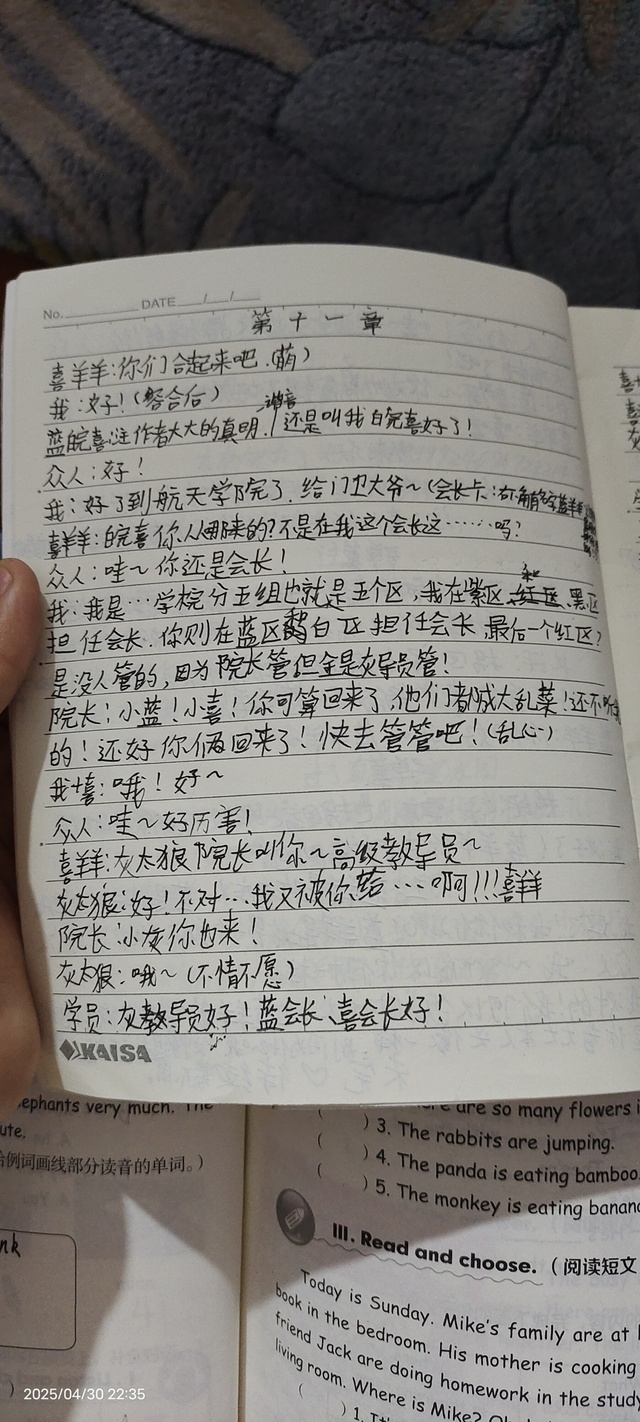 No. DATE / /
第十一章
喜羊羊:你们合起来吧.(萌)
我:好!(整合后)
谐音
蓝皖喜:注作者大大的真明.还是叫我白皖喜好了!
众人:好!
我:好了到航天学院了.给门卫大爷～(会长卡:右角有名字蓝羊羊
喜羊羊:白皖喜你从哪来的?不是在我这个会长这……吗?
众人:哇～你还是会长!
和
我:我是…学校分五组也就是五个区,我在紫区、红区、黑区
担任会长.你则在蓝区和白区担任会长,最后一个红区?
是没人管的,因为院长管但全是灰导员管!
院长:小蓝!小喜!你可算回来了,他们都成大乱菜!还不听
的!还好你俩回来了!快去管管吧!(乱心)
我+喜:哦!好～
众人:哇～好厉害!
喜羊羊:灰太狼院长叫你～高级教导员～
灰太狼:好!不对…我又被你给…啊!!!喜羊羊
院长:小灰你也来!
灰太狼:哦～(不情不愿)
学员:灰教导员好!蓝会长、喜会长好!
KAISA
ephants very much. The
ute.
给例词画线部分读音的单词。)
nk
)
are so many flowers i
( ) 3. The rabbits are jumping.
( ) 4. The panda is eating bamboo.
( ) 5. The monkey is eating banan
III. Read and choose. (阅读短文
Today is Sunday. Mike's family are at h
book in the bedroom. His mother is cooking
friend Jack are doing homework in the study
living room. Where is Mike?
( ) 1.
2025/04/30 22:35